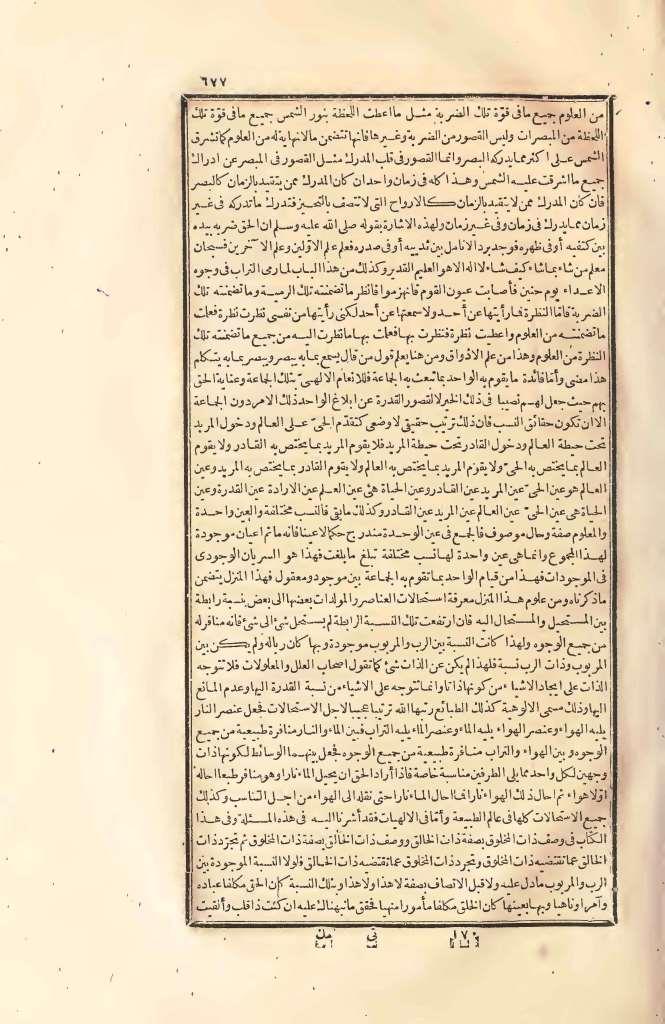 ٦٧٧
من العلوم جميع ما فى قوّة تلك الضربة مثل ما اعطت اللحظة بنور الشمس جميع ما فى قوّة تلك
اللحظة من المبصرات وليس القصور من الضربة وغيرها فانها تتضمن مالا نهاية له من العلوم كما تشرق
الشمس على اكثر مما يدركه البصر وانما القصور فى قلب المدرك مثل القصور فى المبصر عن ادراك
جميع ما اشرقت عليه الشمس وهذا كله فى زمان واحد ان كان المدرك ممن يتقيد بالزمان كالبصر
فان كان المدرك ممن لا يتقيد بالزمان كالارواح التى لا تتصف بالتحيز فتدرك ما تدركه فى غير
زمان مما يدرك فى زمان وفى غير زمان ولهذه الاشارة بقوله صلى الله عليه وسلم ان الحق ضربه بيده
بين كتفيه أو فى ظهره فوجد برد الانامل بين ثدييه أو فى صدره فعلم علم الاوّلين وعلم الآخرين فسبحان
معلم من شاء بما شاء كيف شاء لا اله الا هو العليم القدير وكذلك من هذا الباب لما رمى التراب فى وجوه
الاعداء يوم حنين فأصابت عيون القوم فانهزموا فانظر ما تضمنته تلك الرمية وما تضمنته تلك
الضربة فاما النظرة فما رأيتها عن أحد ولا سمعتها عن أحد لكنى رأيتها من نفسى نظرت نظرة فعلت
ما تضمنته من العلوم واعطيت نظرة فنظرت بها فعلت بها ما نظرت اليه من جميع ما تضمنته تلك
النظرة من العلوم وهذا من علم الاذواق ومن هنا يعلم قول من قال يسمع بما به يبصر ويبصر بما به يتكلم
هذا مضى وأما فائدة ما يقوم به الواحد بما تبعث به الجماعة فللانعام الالهىّ بتلك الجماعة وعناية الحق
بهم حيث جعل لهم نصيبا فى ذلك الخير لا لقصور القدرة عن ابلاغ الواحد ذلك الامر دون الجماعة
الا ان تكون حقائق النسب فان ذلك ترتيب حقيقى لا وضعى كتقدّم الحىّ على العالم ودخول المريد
تحت حيطة العالم ودخول القادر تحت حيطة المريد فلا يقوم المريد بما يختص به القادر ولا يقوم
العالم بما يختص به الحىّ ولا يقوم المريد بما يختص به العالم ولا يقوم القادر بما يختص به المريد وعين
العالم هو عين الحىّ عين المريد عين القادر وعين الحياة هى عين العلم عين الارادة عين القدرة وعين
الحياة هى عين الحىّ عين العالم عين المريد عين القادر وكذلك ما بقى فالنسب مختلفة والعين واحدة
والمعلوم صفة وحال موصوف فالجمع فى عين الوحدة مندرج حكما لا عينا فانه ما ثم اعيان موجودة
لهذا المجموع وانما هى عين واحدة لها نسب مختلفة تبلغ ما بلغت فهذا هو السريان الوجودى
فى الموجودات فهذا من قيام الواحد بما تقوم به الجماعة بين موجود ومعقول فهذا المنزل يتضمن
ما ذكرناه ومن علوم هذا المنزل معرفة استحالات العناصر والمولدات بعضها الى بعض بنسبة رابطة
بين المستحيل والمستحال اليه فان ارتفعت تلك النسبة الرابطة لم يستحل شئ الى شئ فانه منافر له
من جميع الوجوه ولهذا كانت النسبة بين الرب والمربوب موجودة وبها كان ربا له ولم يكن بين
المربوب وذات الرب نسبة فلهذا لم يكن عن الذات شئ كما تقول اصحاب العلل والمعلولات فلا تتوجه
الذات على ايجاد الاشياء من كونها ذاتا وانما تتوجه على الاشياء من نسبة القدرة اليها وعدم المانع
اليها وذلك مسمى الالوهية كذلك الطبائع رتبها الله ترتيبا عجيبا لاجل الاستحالات فجعل عنصر النار
يليه الهواء وعنصر الهواء يليه الماء وعنصر الماء يليه التراب فبين الماء والنار منافرة طبيعية من جميع
الوجوه وبين الهواء والتراب منافرة طبيعية من جميع الوجوه فجعل بينهما الوسائط لكونها ذات
وجهين لكل واحد مما يلى الطرفين مناسبة خاصة فاذا أراد الحق ان يحيل الماء نارا وهو منافر طبعا احاله
اوّلا هواء ثم احال ذلك الهواء نارا فما احال الماء نارا حتى نقله الى الهواء من اجل التناسب وكذلك
جميع الاستحالات كلها فى عالم الطبيعة وأما فى الالهيات فقد أشرنا اليه فى هذه المسئلة وفى هذا
الكتاب فى وصف ذات المخلوق بصفة ذات الخالق ووصف ذات الخالق بصفة ذات المخلوق ثم تجرّد ذات
الخالق عما تقتضيه ذات المخلوق وتجرّد ذات المخلوق عما تقتضيه ذات الخالق فلولا النسبة الموجودة بين
الرب والمربوب ما دل عليه ولا قبل الاتصاف بصفة لا هذا ولا هذا وبتلك النسبة كان الحق مكلفا عباده
وآمرا وناهيا وبها بعينها كان الخلق مكلفا مأمورا منهيا فحقق ما نبهناك عليه ان كنت ذا قلب وألقيت
١٧٠ فى من